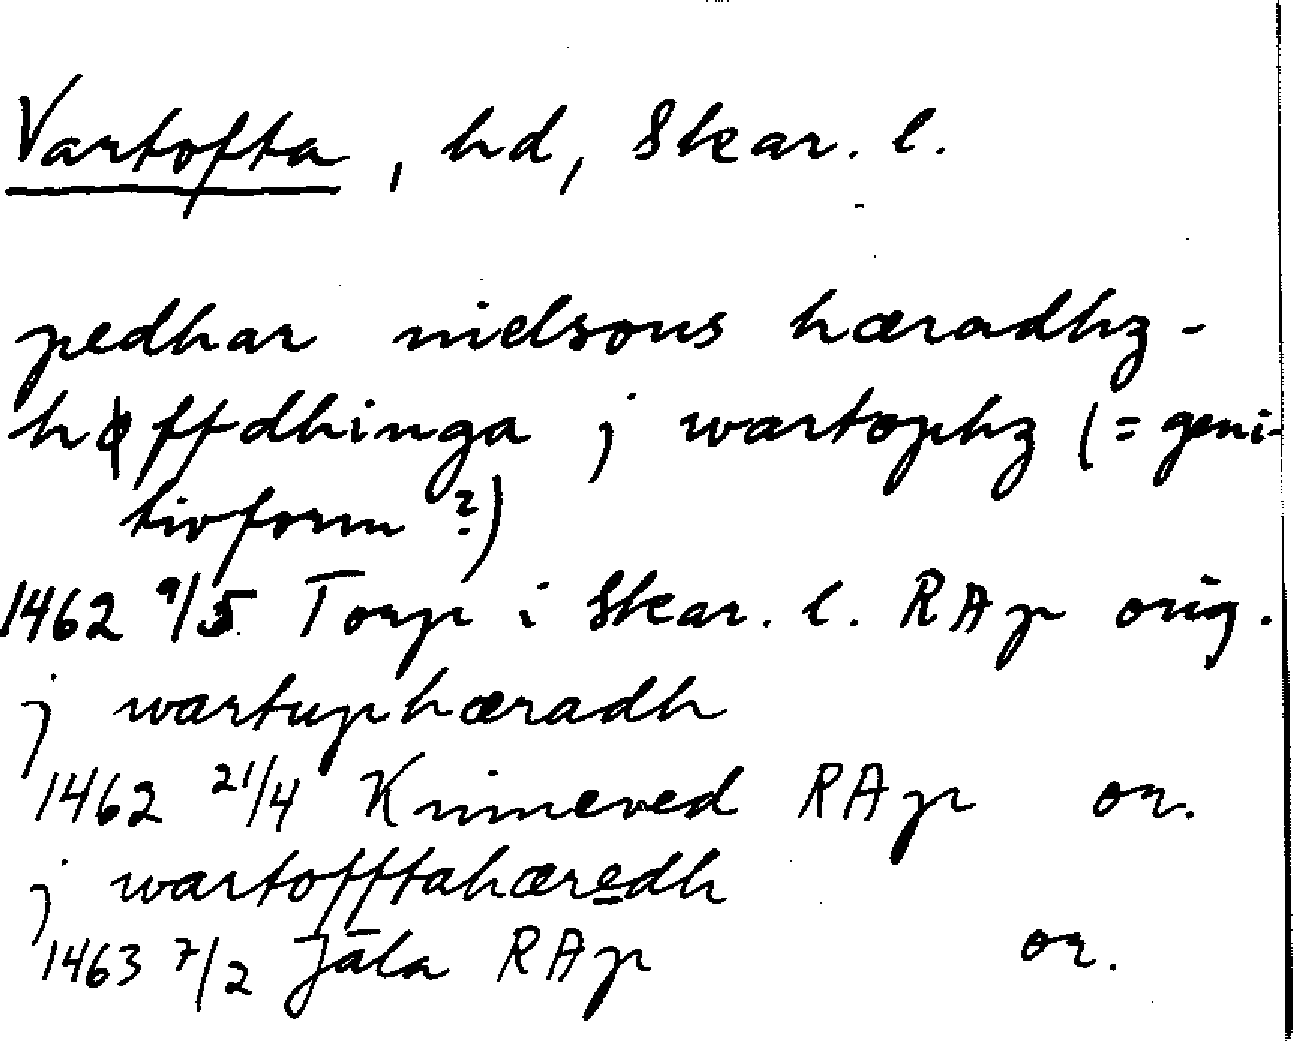 Vartofta, hd, Skar. l.
pedhar nielsons hæradhz-
høffdhinga j wartophz (= geni-
tivform?)
1462 9/5 Torp i Skar. l. RAp orig.
j wartuphæradh
1462 21/4 Kinneved RAp or.
j wartofftahæredh
1463 7/2 Jäla RAp or.